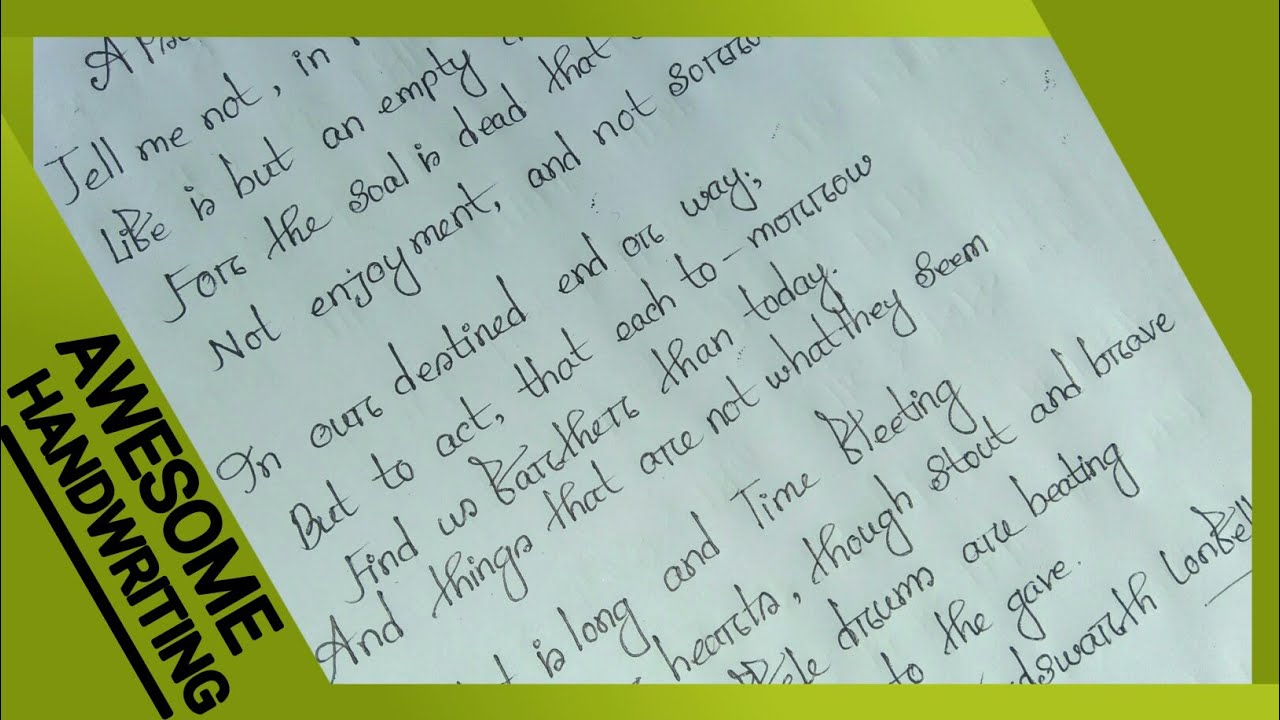 AWESOME
HANDWRITING
A
Tell me not, in
Life is but an empty
For the soal is dead that
Not enjoyment, and not
In our destined end or way;
But to act, that each to-morrow
Find us farther than today.
And things that are not what they seem
is long and Time fleeting
hearts, though stout and brave
drums are beating
to the gave.